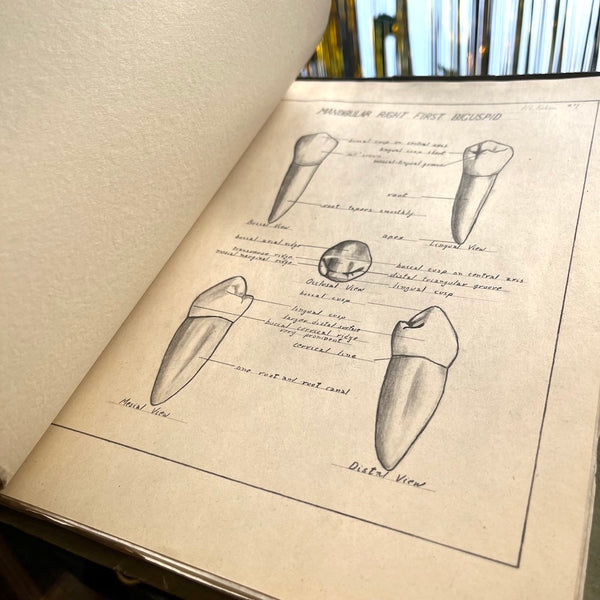 MANDIBULAR RIGHT FIRST BICUSPID
buccal cusp on central axis
lingual cusp short
mesial-lingual groove
root
root tapers smoothly
Buccal View
apex
Lingual View
buccal axial ridge
transverse ridge
mesial marginal ridge
buccal cusp on central axis
distal triangular groove
lingual cusp
Occlusal View
buccal cusp
lingual cusp
larger distal surface
buccal cervical ridge
very prominent
cervical line
one root and root canal
Mesial View
Distal View